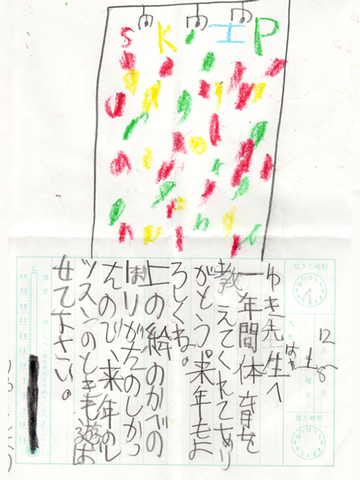 SKIP
ゆき先生へ
一年間体育を
教えてくれてあり
がとう。来年もよ
ろしくね。
上の絵のかべの
ぼりがたのしかっ
たので、来年のレ
ッスンのときも遊ば
せて下さい。
起きた時刻
12
寝た時刻